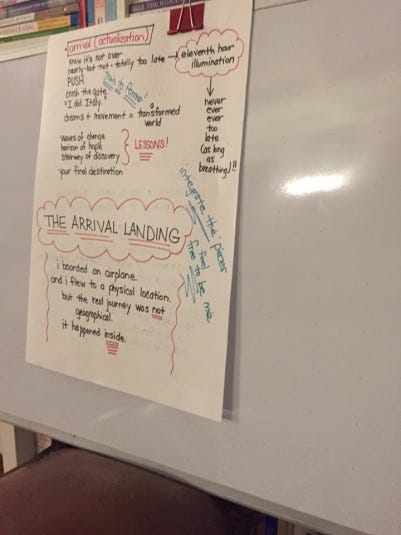 arrival (actualization)
know it's not over
nearly-but-not-totally too late
PUSH
crash the gate
"I. Did. Italy."
train to Rome!
dreams + movement = a transformed
world
eleventh hour
illumination
never
ever
ever
too
late
(as long
as
breathing)!!
waves of change
horizon of hope
stairway of discovery
LESSONS!
your final destination
integrate the pieces
feel
free to be me.
THE ARRIVAL LANDING
i boarded an airplane.
and i flew to a physical location.
but the real journey was not
geographical.
it happened inside.